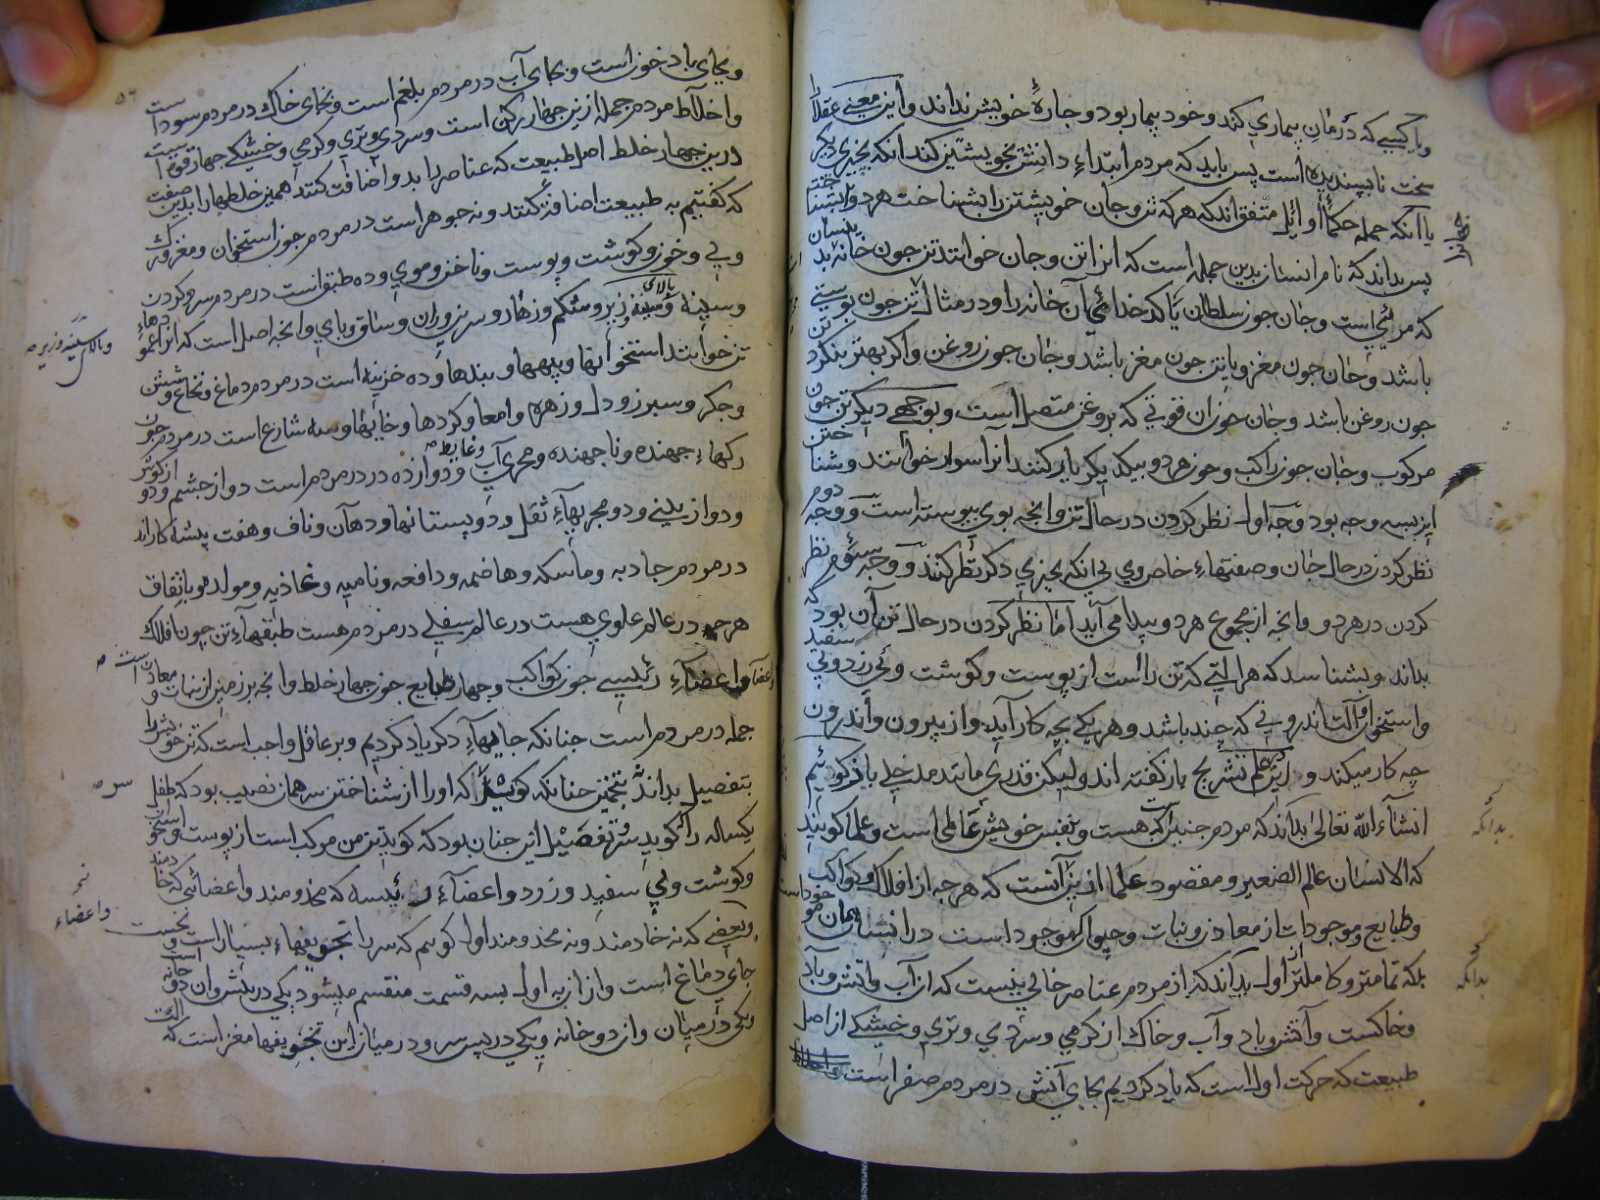 یا کسی که درمان بیماری کند و خود بیمار بود و چارهٔ خویش نداند و این معنی عقلا
سخت ناپسندیده است پس باید که مردم ابتداء دانش بخویشتن کند آنکه بچیزی دیگر
یا آنکه جمله حکماء اوائل متفق اند که هر که تن و جان خویشتن را بشناخت هر دو
پس بداند که نام انسان بدین جمله است که از تن و جان خوانند تن چون خانه
که مرئی است و جان چون سلطان یا کدخدای آن خانه را و در مثال تن چون پوستی
باشد و جان چون مغز و یا تن چون مغز باشد و جان چون روغن و اگر بهتر بنگرد تن
چون روغن باشد و جان چون آن قوتی که بروغن متصل است و بوجهی دیگر تن چون
مرکوب و جان چون راکب و چون هر دو بیکدیگر یار کنند آنرا سوار خوانند و شناختن
این بسه وجه بود وجه اول نظر کردن در حال تن و آنچه بوی پیوسته است و وجه دوم
نظر کردن در حال جان و صفتهاء خاص وی بی آنکه بچیزی دگر نظر کنند و وجه سوم نظر
کردن در هر دو و آنچه از مجموع هر دو پیدا می آید اما نظر کردن در حال تن آن بود که
بداند و بشناسد که هر آلتی که تن را است از پوست و گوشت و پی زرد و پی سفید
و استخوان و آلت اندرونی که چند باشد و هر یکی بچه کار آید و از بیرون و اندرون
چه کار میکند و این علم تشریح باز گفته اند و لیکن قدری مانند مدخلی یاد کردیم
انشاء الله تعالی بداند که مردم چنین که هست و بنفس خویش عالمی است و علما گویند
که الانسان عالم الصغیر و مقصود علما ازین آنست که هر چه از افلاک و کواکب
و طبایع و موجودات از معادن و نبات و حیوان موجود است در انسان همان موجود است
بلکه تمامتر و کاملتر اول بداند که از مردم عناصر خالی نیست که از آب و آتش و باد
و خاکست و آتش و باد و آب و خاک از گرمی و سردی و تری و خشکی از اصل
طبیعت که حرکت اول است که یاد کردیم بجای آتش در مردم صفراست
و بجای باد خون است و بجای آب در مردم بلغم است و بجای خاک در مردم سودا است
و اخلاط مردم جمله ازین چهار رکن است و سردی و تری و گرمی و خشکی چهار قوت است
درین چهار خلط اصل طبیعت که عناصر را بدو اضافت کنند همین خلطها را بدین صفت
که گفتیم به طبیعت اضافت کنند و نه جوهر است در مردم چون استخوان و مغز و رگ
و پی و خون و گوشت و پوست و ناخن و موی و ده طبق است در مردم سر و گردن
و سینه و زیر و شکم و زهار و سرین و ران و ساق و پای و آنچه اصل است که آنرا عمودهاء
تن خوانند استخوانها و پیهها و بندها و ده خزینه است در مردم دماغ و نخاع و شش
و جگر و سپرز و دل و زهره و امعا و گردها و خایها و سه شارع است در مردم چون
رگهاء جهنده و ناجهنده و مجری آب و غایط و دوازده در در مردم است دو از چشم و دو از گوش
و دو از بینی و دو مجریهاء ثفل و دو پستانها و دهان و ناف و هفت پیشه کاراند
در مردم جاذبه و ماسکه و هاضمه و دافعه و نامیه و غاذیه و مولده و باتفاق
هر چه در عالم علوی هست در عالم سفلی در مردم هست طبقهاء تن چون افلاک
و اعضاء رئیسی چون کواکب و چهار طبایع چون چهار خلط و آنچه بر زمین از نبات و معادن است
جمله در مردم است چنانکه جایهاء دگر یاد کردیم و بر عاقل واجب است که تن خویش را
بتفصیل بداند بتخمین چنانکه گویند که او را از شناختن سر همان نصیب بود که طفل
یکساله را گوید تفصیل این چنان بود که گوید تن من مرکب است از پوست و خون
و گوشت و پی سفید و زرد و اعضاء رئیسه که مخدومند و اعضائی که خادمند
و بعضی که نه خادمند و نه مخدومند اول گویم که سر را تجویفهاء بسیار است و نخست
جای دماغ است و از ازیه اول بسه قسمت منقسم میشود یکی در پیش و آن دو خانه است
و یکی در میان و از دو خانه و یکی در پس سر و در میان این تجویفها مغز است که
بدانکه
بدانکه
و اعضاء